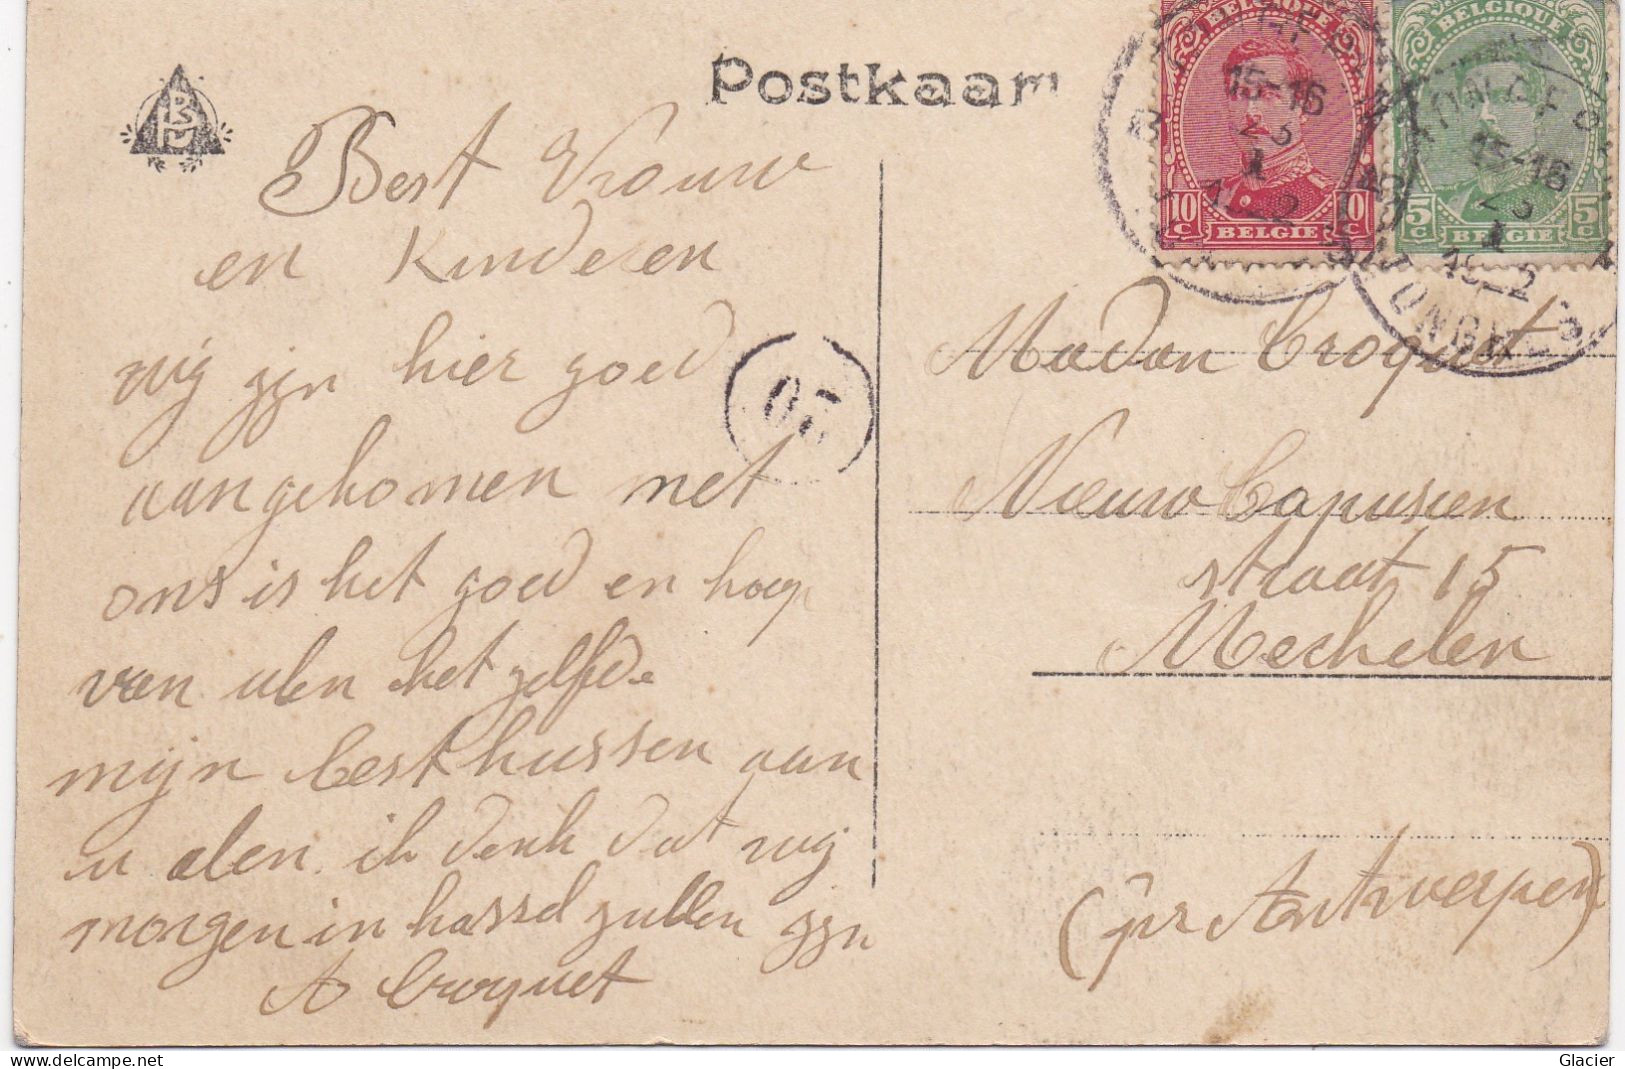 Postkaart
Best Vrouw
en Kinderen
wij zijn hier goed
aangekomen met
ons is het goed en hoop
van ulen het zelfde
mijn best kussen aan
u alen ik denk dat wij
morgen in hassel zullen zijn
A Croquet
BELGIQUE
15-16
23
1
10 c BELGIE 10 c
BELGIQUE
15-16
23
1
5 c BELGIE 5 c
TONGRES
TONGEREN
Madam Croquet
Nieuw Capusien
straat 15
Mechelen
(pr Antwerpen)
Glacier